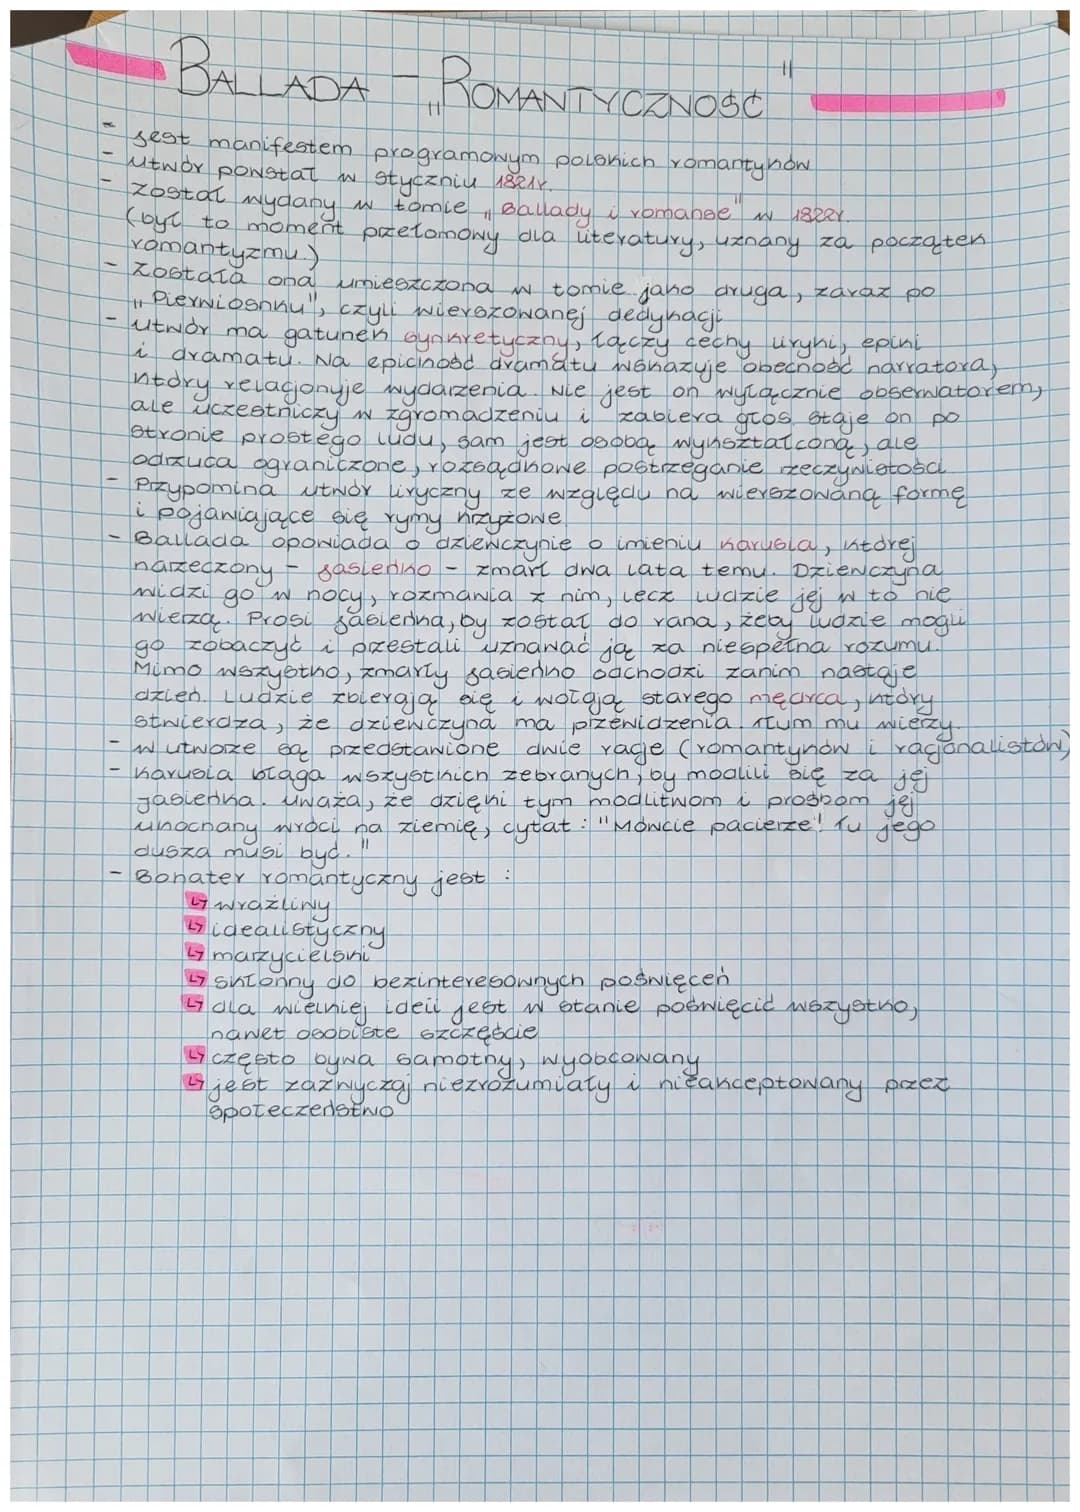 BALLADA - „ROMANTYCZNOŚĆ"
- jest manifestem programowym polskich romantyków
- utwór powstał w styczniu 1821r.
- został wydany w tomie „Ballady i romanse" w 1822r.
(był to moment przełomowy dla literatury, uznany za początek
romantyzmu.)
- została ona umieszczona w tomie jako druga, zaraz po
„Pierwiosnku", czyli wierszowanej dedykacji
- utwór ma gatunek synkretyczny, łączy cechy liryki, epiki
i dramatu. Na epickość dramatu wskazuje obecność narratora,
który relacjonuje wydarzenia. Nie jest on wyłącznie obserwatorem,
ale uczestniczy w zgromadzeniu i zabiera głos. Staje on po
stronie prostego ludu, sam jest osobą wykształconą, ale
odrzuca ograniczone, rozsądkowe postrzeganie rzeczywistości.
- Przypomina utwór liryczny ze względu na wierszowaną formę
i pojawiające się rymy krzyżowe.
- Ballada opowiada o dziewczynie o imieniu Karusia, której
narzeczony - Jasieńko - zmarł dwa lata temu. Dziewczyna
widzi go w nocy, rozmawia z nim, lecz ludzie jej w to nie
wierzą. Prosi Jasieńka, by został do rana, żeby ludzie mogli
go zobaczyć i przestali uznawać ją za niespełna rozumu.
Mimo wszystko, zmarły Jasieńko odchodzi zanim nastaje
dzień. Ludzie zbierają się i wołają starego mędrca, który
stwierdza, że dziewczyna ma przewidzenia. Tłum mu wierzy.
- W utworze są przedstawione dwie racje (romantyków i racjonalistów)
- Karusia błaga wszystkich zebranych, by modlili się za jej
Jasieńka. Uważa, że dzięki tym modlitwom i prośbom jej
ukochany wróci na ziemię, cytat: "Mówcie pacierze! Tu jego
dusza musi być."
- Bohater romantyczny jest :
↳ wrażliwy
↳ idealistyczny
↳ marzycielski
↳ skłonny do bezinteresownych poświęceń
↳ dla wielkiej ideii jest w stanie poświęcić wszystko,
nawet osobiste szczęście
↳ często bywa samotny, wyobcowany
↳ jest zazwyczaj niezrozumiały i nieakceptowany przez
społeczeństwo